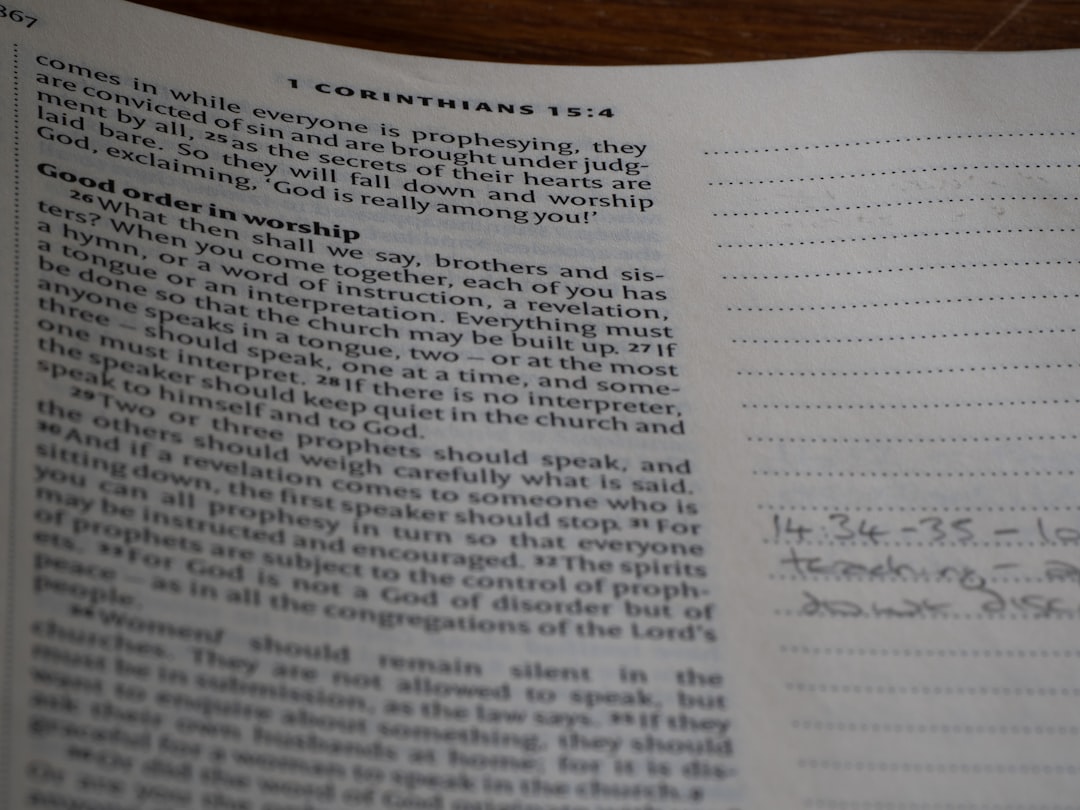 367
1 CORINTHIANS 15:4
comes in while everyone is prophesying, they
are convicted of sin and are brought under judg-
ment by all, 25 as the secrets of their hearts are
laid bare. So they will fall down and worship
God, exclaiming, ‘God is really among you!’
Good order in worship
26 What then shall we say, brothers and sis-
ters? When you come together, each of you has
a hymn, or a word of instruction, a revelation,
a tongue or an interpretation. Everything must
be done so that the church may be built up. 27 If
anyone speaks in a tongue, two – or at the most
three – should speak, one at a time, and some-
one must interpret. 28 If there is no interpreter,
the speaker should keep quiet in the church and
speak to himself and to God.
29 Two or three prophets should speak, and
the others should weigh carefully what is said.
30 And if a revelation comes to someone who is
sitting down, the first speaker should stop. 31 For
you can all prophesy in turn so that everyone
may be instructed and encouraged. 32 The spirits
of prophets are subject to the control of proph-
ets. 33 For God is not a God of disorder but of
peace – as in all the congregations of the Lord's
people.
34 Women f should remain silent in the
churches. They are not allowed to speak, but
must be in submission, as the law says. 35 If they
want to enquire about something, they should
ask their own husbands at home; for it is dis-
graceful for a woman to speak in the church. g
36 Or did the word of God
Or are you the
14:34-35 –
teaching –